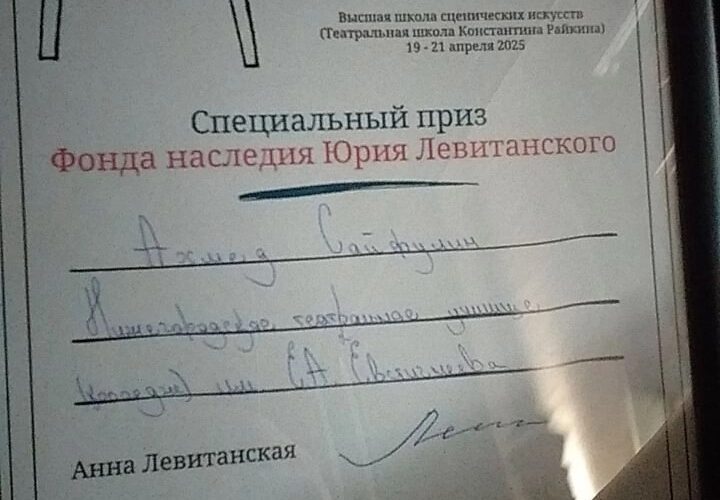 Высшая школа сценических искусств
(Театральная школа Константина Райкина)
19 - 21 апреля 2025
Специальный приз
Фонда наследия Юрия Левитанского
Ахмед Сайфулин
Нижегородское театральное училище
(колледж) им. Е.А. Евстигнеева
Анна Левитанская